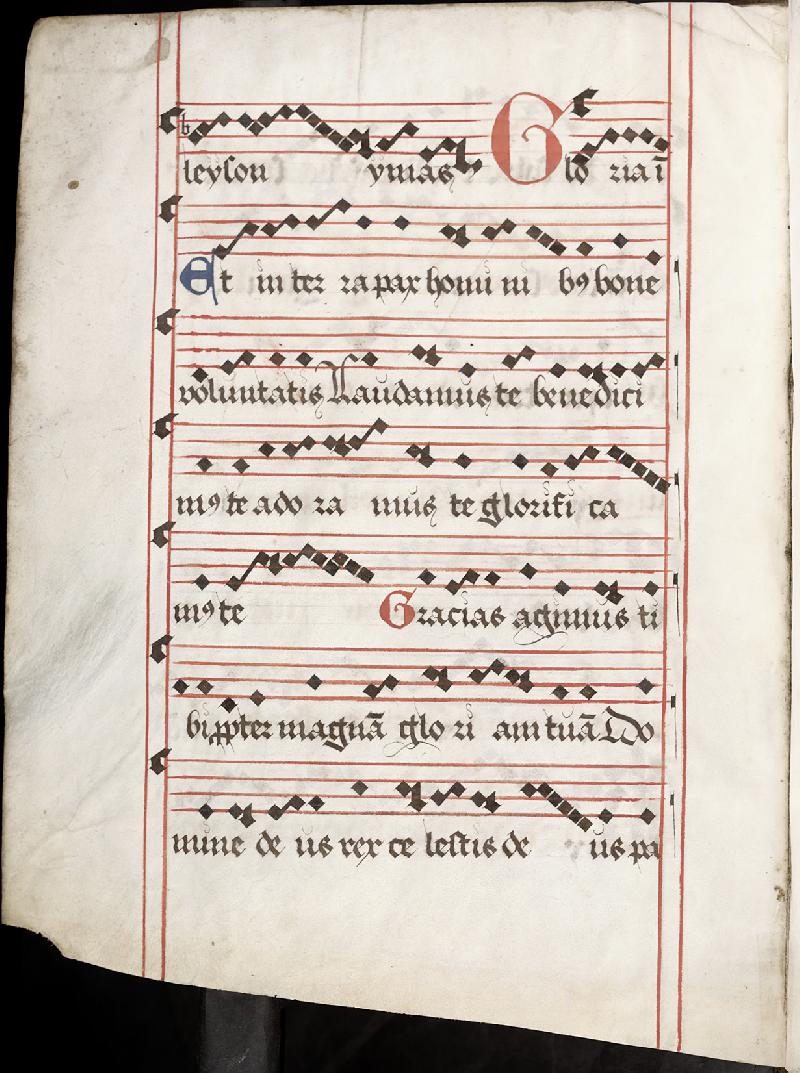 leyson ymas Glo ria ī
Et in ter ra pax homi ni bꝯ bone
voluntatis Laudamus te benedici
mꝯ te ado ra mus te glorifi ca
mꝯ te Gracias agimus ti
bi ꝓpter magnā glo ri am tuā Do
mine de us rex ce lestis de us pa